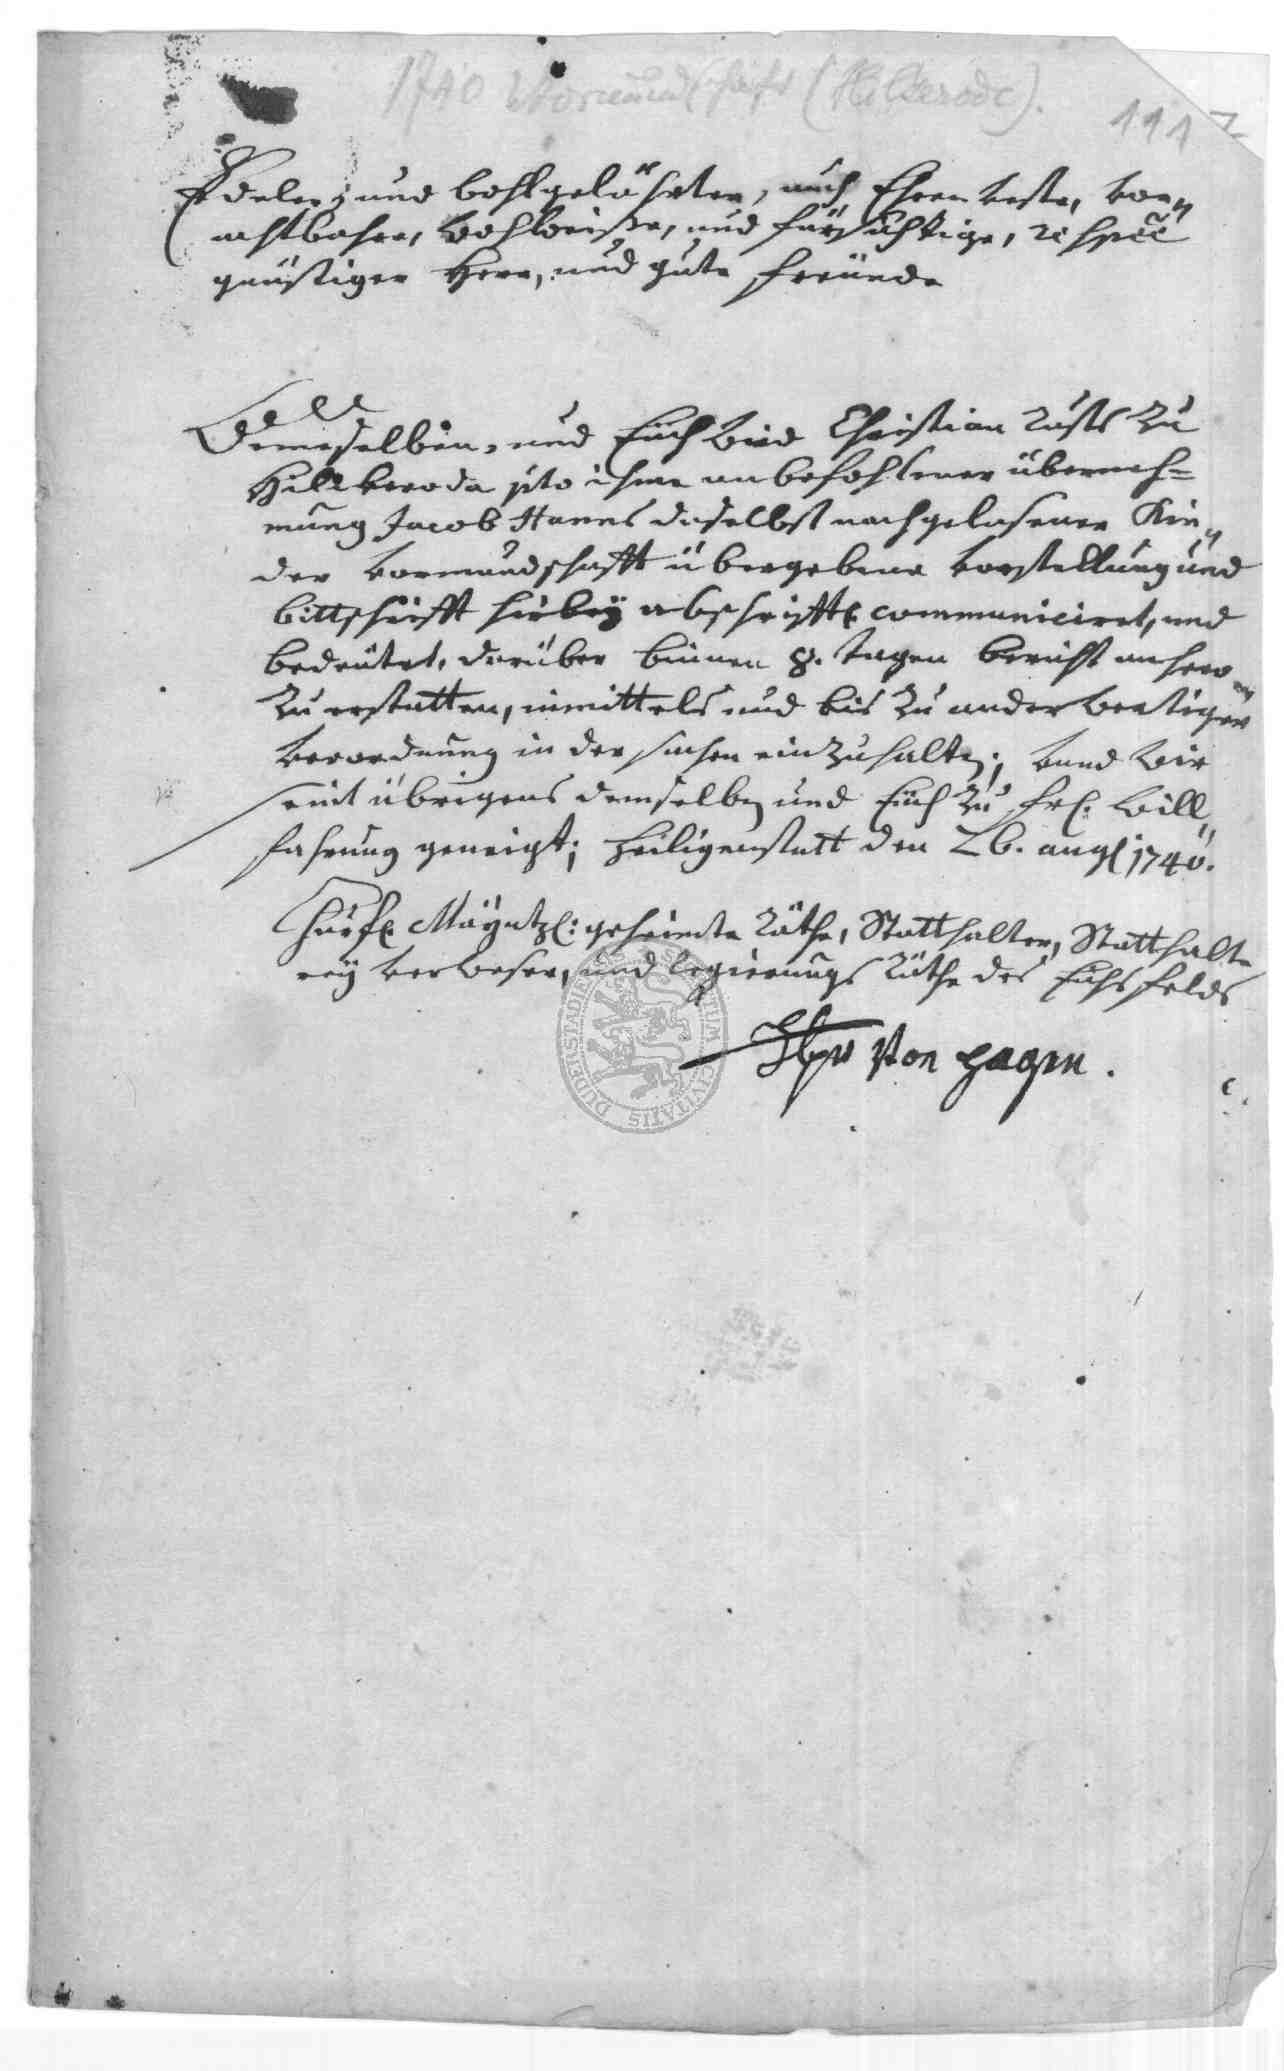 1740 Vormundschaft (Hilkerode).
111
Edeler, und wohlgelährter, auch Ehrenveste, vor„
achtbahre, wohlweiße, und fürsichtige, respec
günstiger Herr, und gute freünde
Demeselben, und Eüch wird Christian Rusts zu
Hillkeroda pto ihme anbefohlener überneh=
mung Jacob Hanns daselbst nachgelasener Kin„
der vormundschafft übergebene vorstellung und
bittschrifft hirbeÿ abschrifftl. communiciret, und
bedeütet, darüber binnen 8. tagen bericht anhero
zu erstatten, inmittels und bis zu anderwertiger
verordnung in der sachen einzuhalten; unnd wir
seint übrigens demselben und Eüch zu frl. will„
fahrung geneigt; Heiligenstatt den 26. augl 1740.
Churfl. Mäyntzl: geheimte Räthe, Statthalter, Statthalte
reÿ verweser, und regierungs Räthe des Eichsfelds
von Hagen.
DUDERSTADIENSIS CIVITATIS